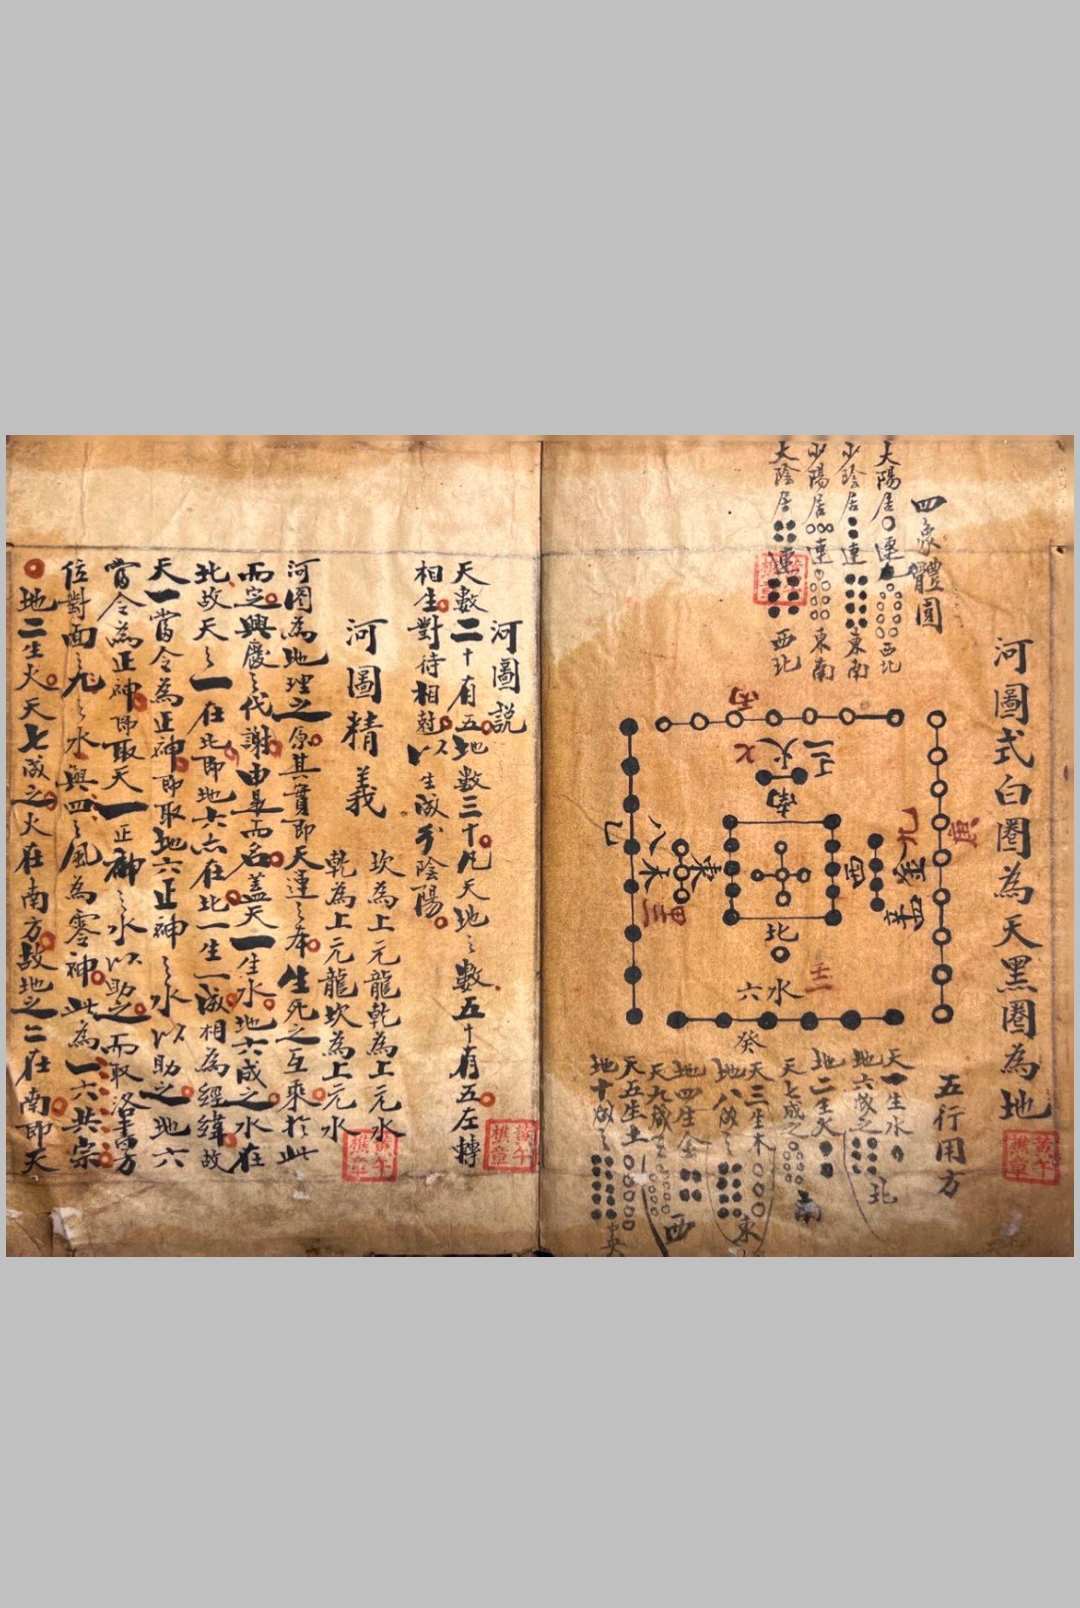 河圖式白圈為天黑圈為地
五行用方
四象體圓
太陽居連西北
少陰居連東南
少陽居連東南
太陰居連西北
丙
七火二
南
九金
西
庚
八木三
東
北
六水
壬
癸
天一生水
地六成之北
地二生火
天七成之南
天三生木
地八成之東
地四生金
天九成之西
天五生土
地十成之
河圖說
天數二十有五地數三十凡天地之數五十有五左轉
相生對待相尅以生成分陰陽
河圖精義
坎為上元龍乾為上元水
乾為上元龍坎為上元水
河圖為地理之原其實即天運之本生死之互乘於此
而定興廢之代謝由是而名蓋天一生水地六成之水在
北故天之一在北即地六亦在北一生一成相為經緯故
天一當令為正神即取地六正神之水以助之地六
當令為正神即取天一正神之水以助之而取洛書方
位對面九之水與四之風為零神此為一六共宗
地二生火天七成之火在南方故地之二在南即天